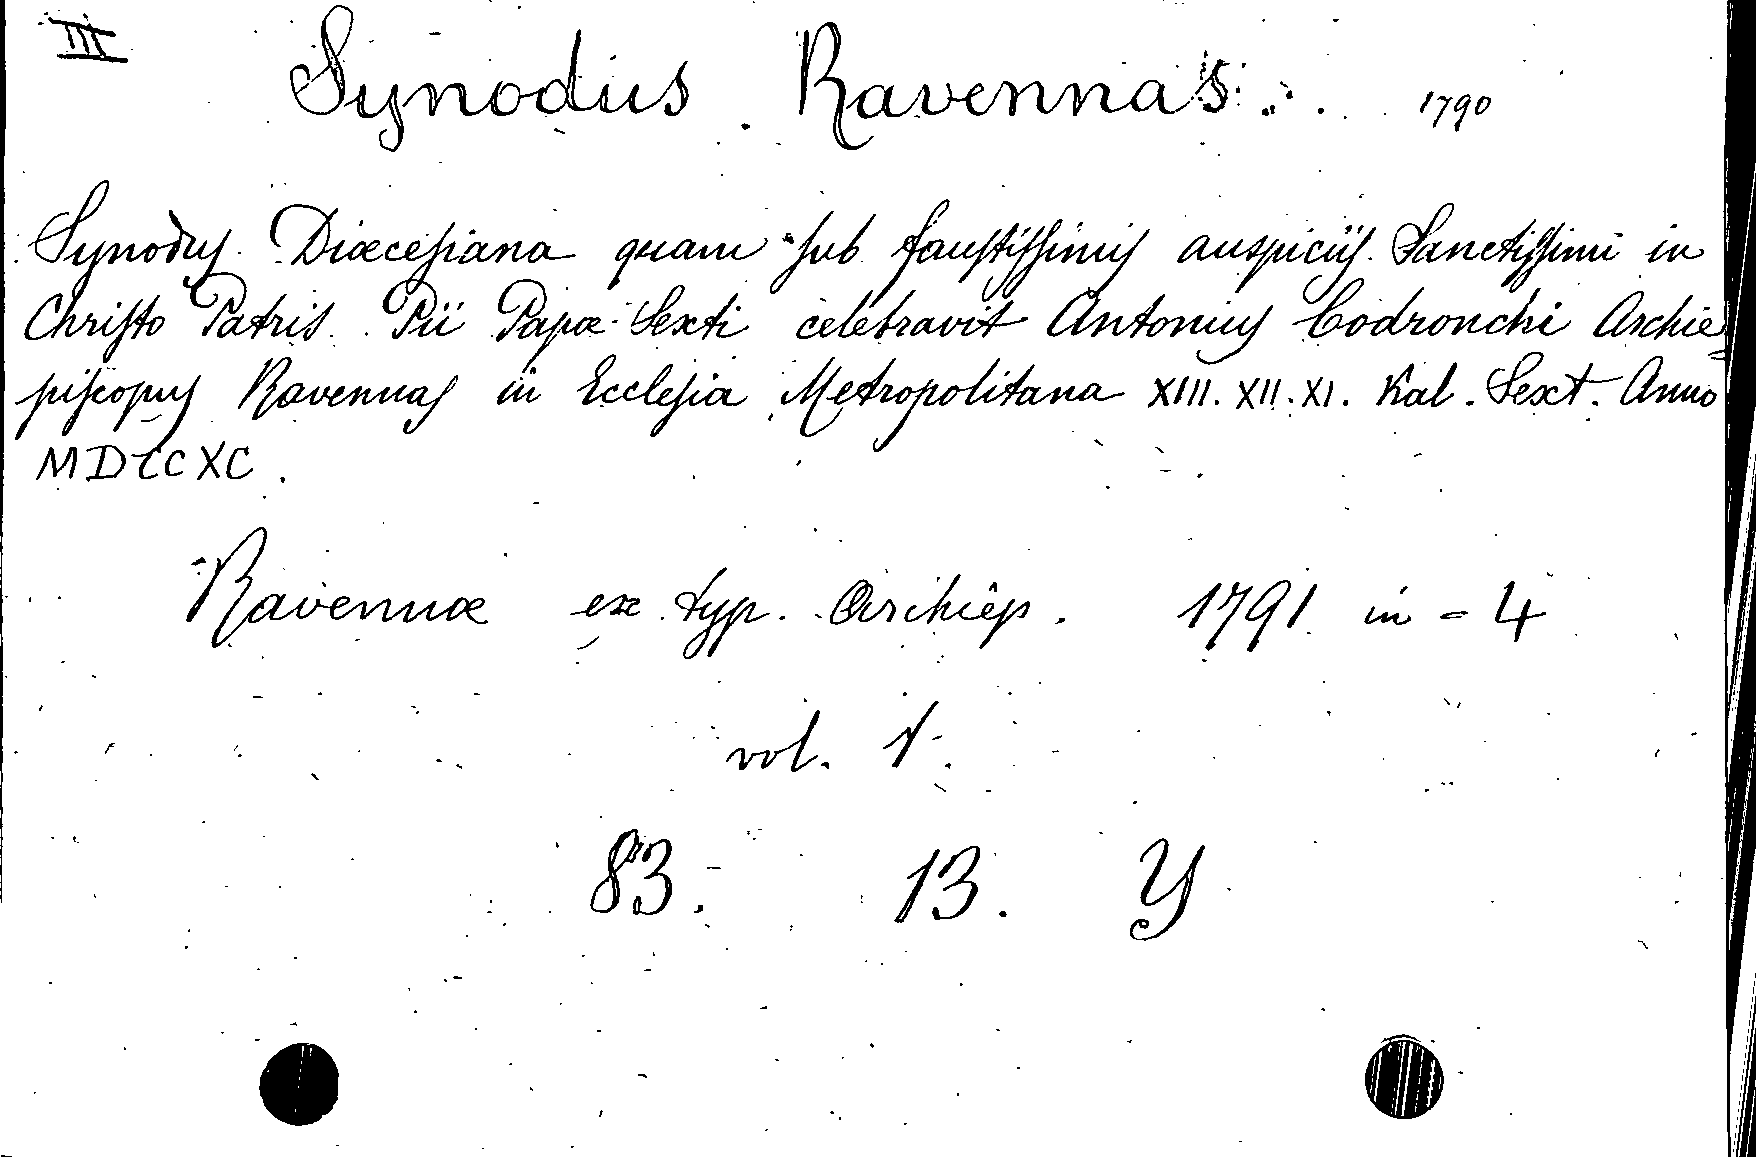 III
Synodus Ravennas 1790
Synodus Diœcesiana quam sub faustissimis auspiciis Sanctissimi in
Christo Patris Pii Papæ Sexti celebravit Antonius Codronchi Archie=
piscopus Ravennas in Ecclesia Metropolitana XIII. XII. XI. Kal. Sext. Anno
MDCCXC.
Ravennæ ex typ. Archiep. 1791 in-4
vol. 1.
83. 13. Y